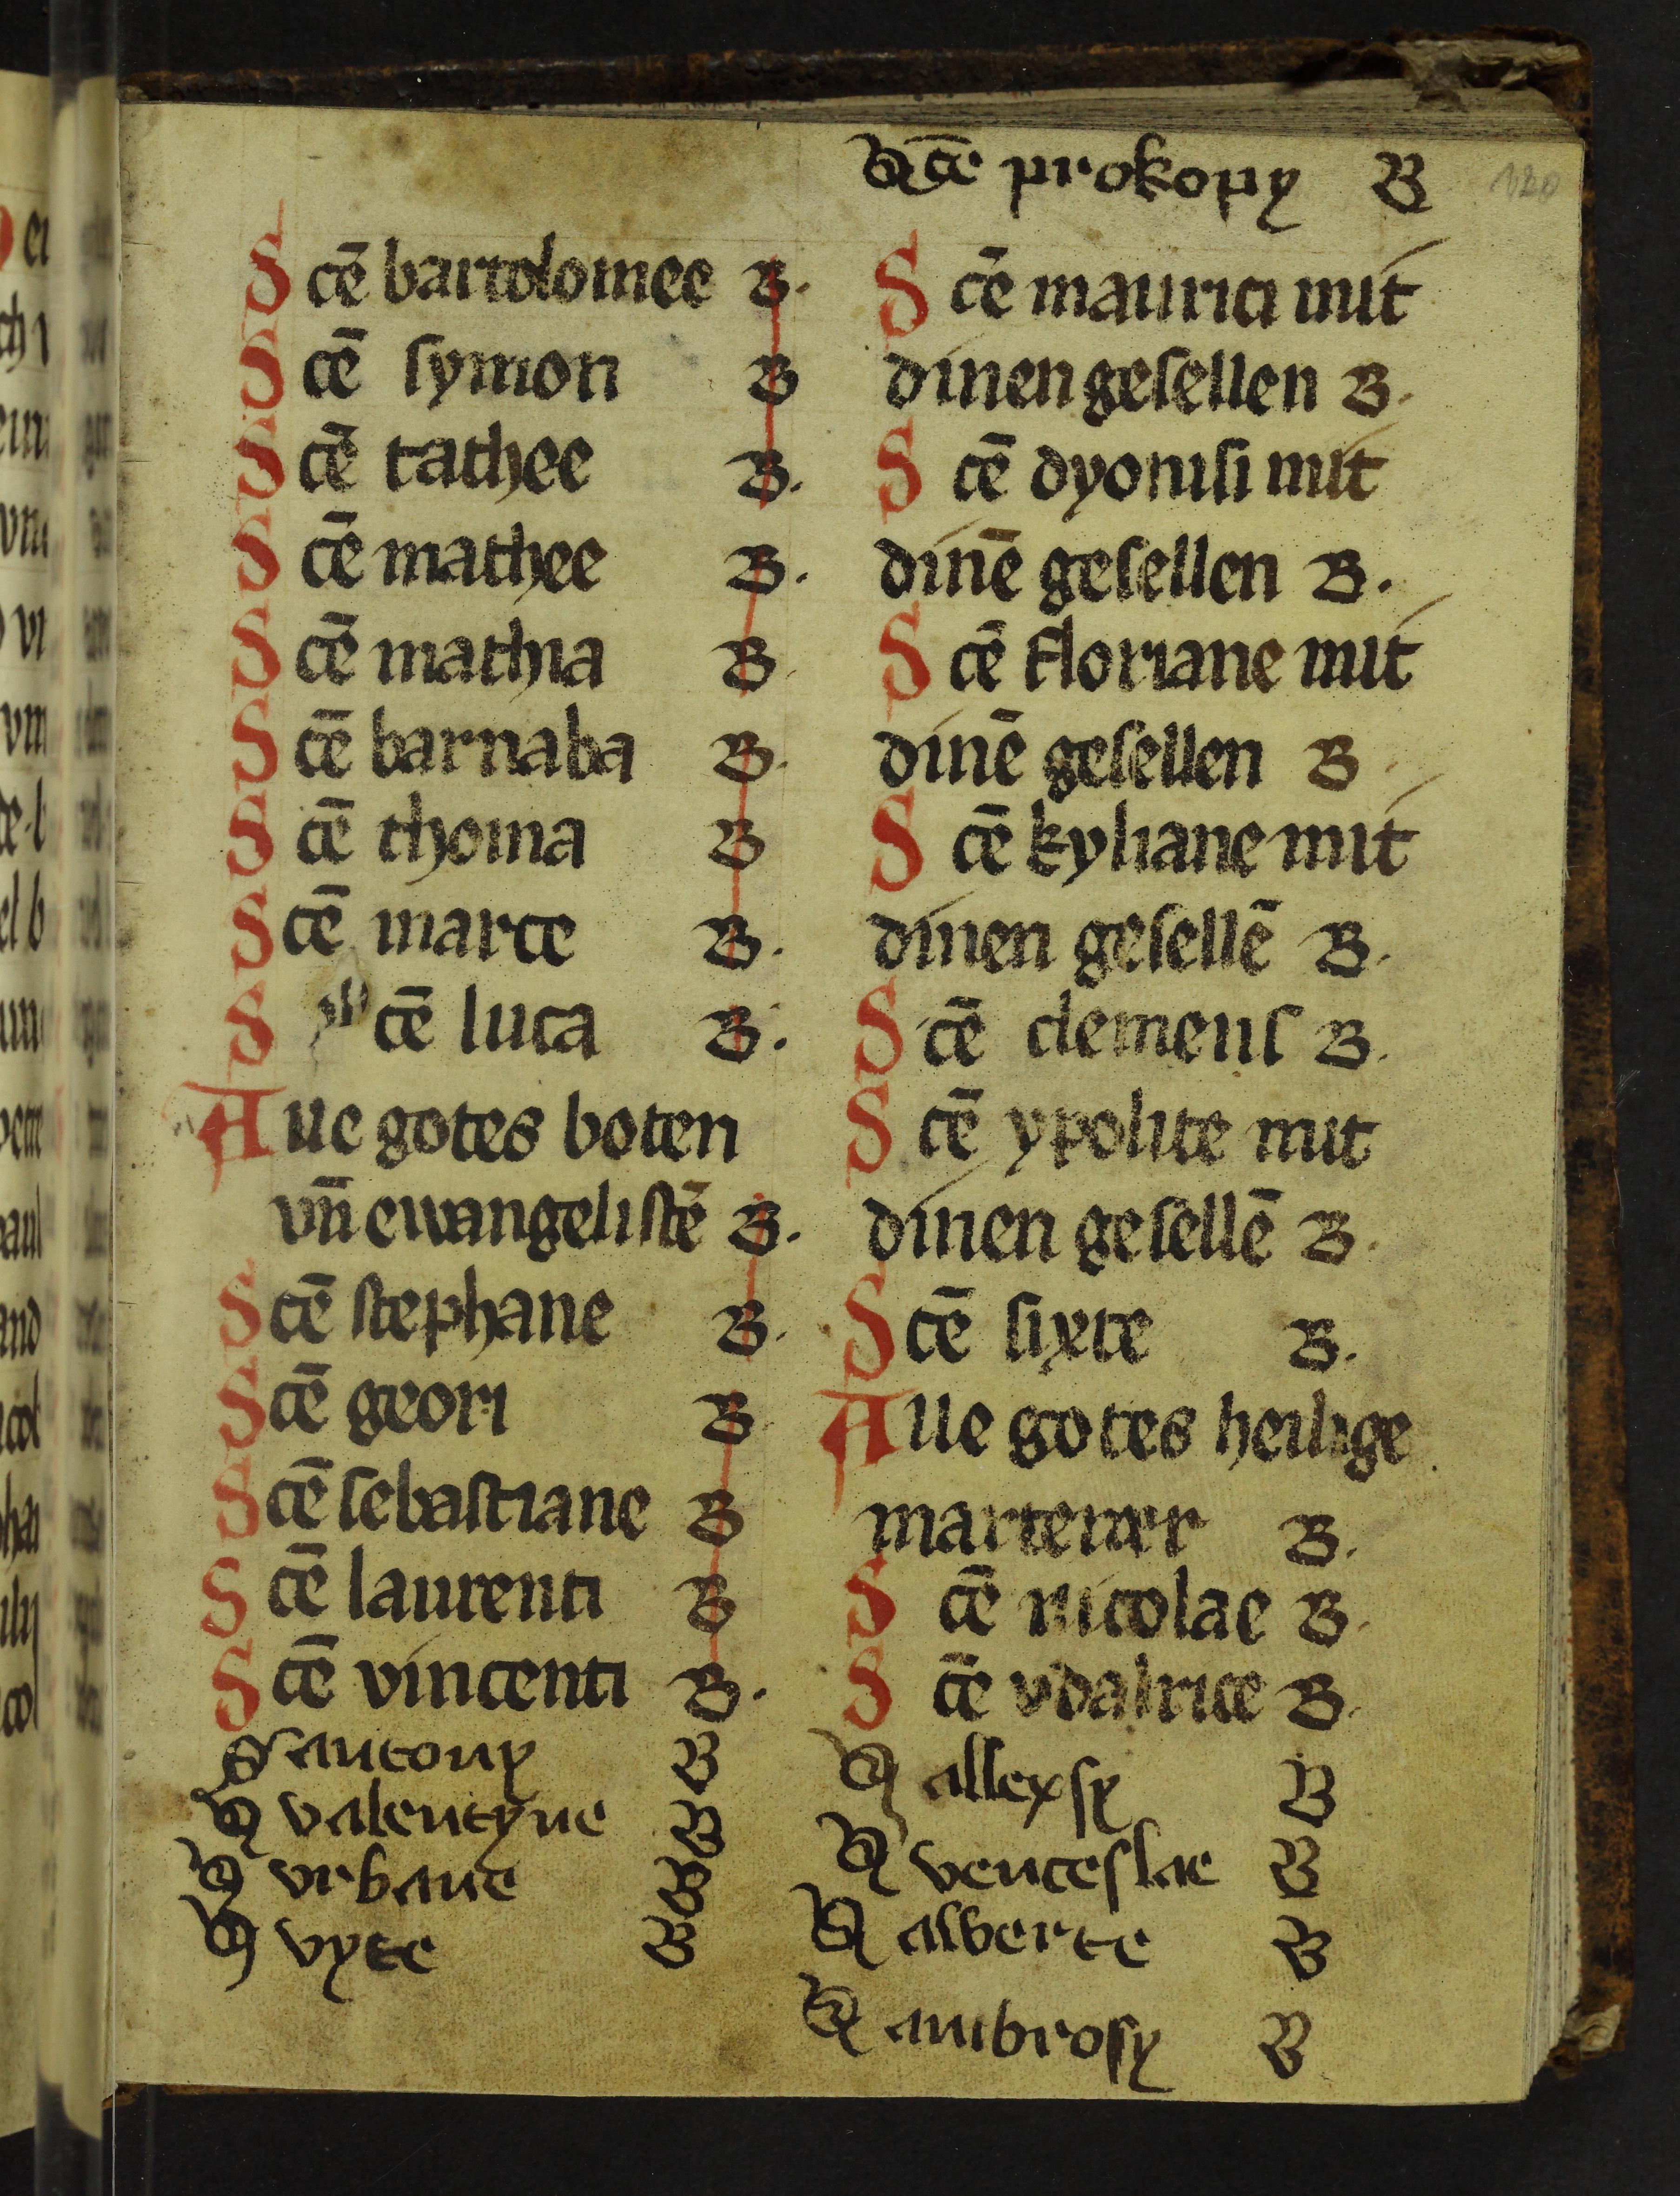 Scē prokopy B
120
Scē bartolomee B.
Scē ſymon B
Scē tathee B.
Scē mathee B.
Scē mathia B
Scē barnaba B.
Scē thoma B
Scē marce B.
Scē luca B.
Alle gotes boten
vn̄ ewangeliſtē B.
Scē ſtephane B.
Scē geori B
Scē ſebaſtiane B
Scē laurenti B
Scē vincenti B.
S antony B
S valentyne B
S vrbane B
S vyte B
Scē maurici mit
dinen geſellen B.
Scē dyoniſi mit
dinē geſellen B.
Scē floriane mit
dinē geſellen B
Scē kyliane mit
dinen geſellē B.
Scē clemenſ B.
Scē ypolite mit
dinen geſellē B.
Scē ſixte B.
Alle gotes heilige
marterer B.
Scē nicolae B.
Scē vdalrice B.
S allexſy B
S venceſlae B
S alberte B
S ambroſy B